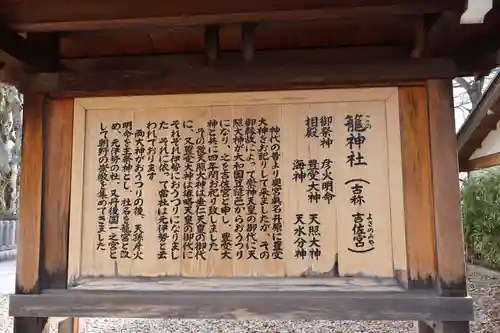 籠神社 (古称 吉佐宮)
この
よさのみや
御祭神 彦火明命
相殿 豊受大神 天照大神
海神 天水分神
神代の昔より奥宮眞名井原に豊受
大神をお祀りして来ましたが、その
御縁故によって崇神天皇の御代に天
照大神が大和国笠縫邑からおうつり
になり、之を吉佐宮と申し、豊受大
神と共に四年間お祀り致しました。
その後天照大神は垂仁天皇の御代
に、又豊受大神は雄略天皇の御代に
それぞれ伊勢におうつりになりまし
た。それに依って當社は元伊勢と云
われております
両大神がおうつりの後、天孫彦火
明命を主祭神とし、社名を籠宮と改
め、元伊勢の社、又丹後国一の宮と
して朝野の崇敬を集めてきました